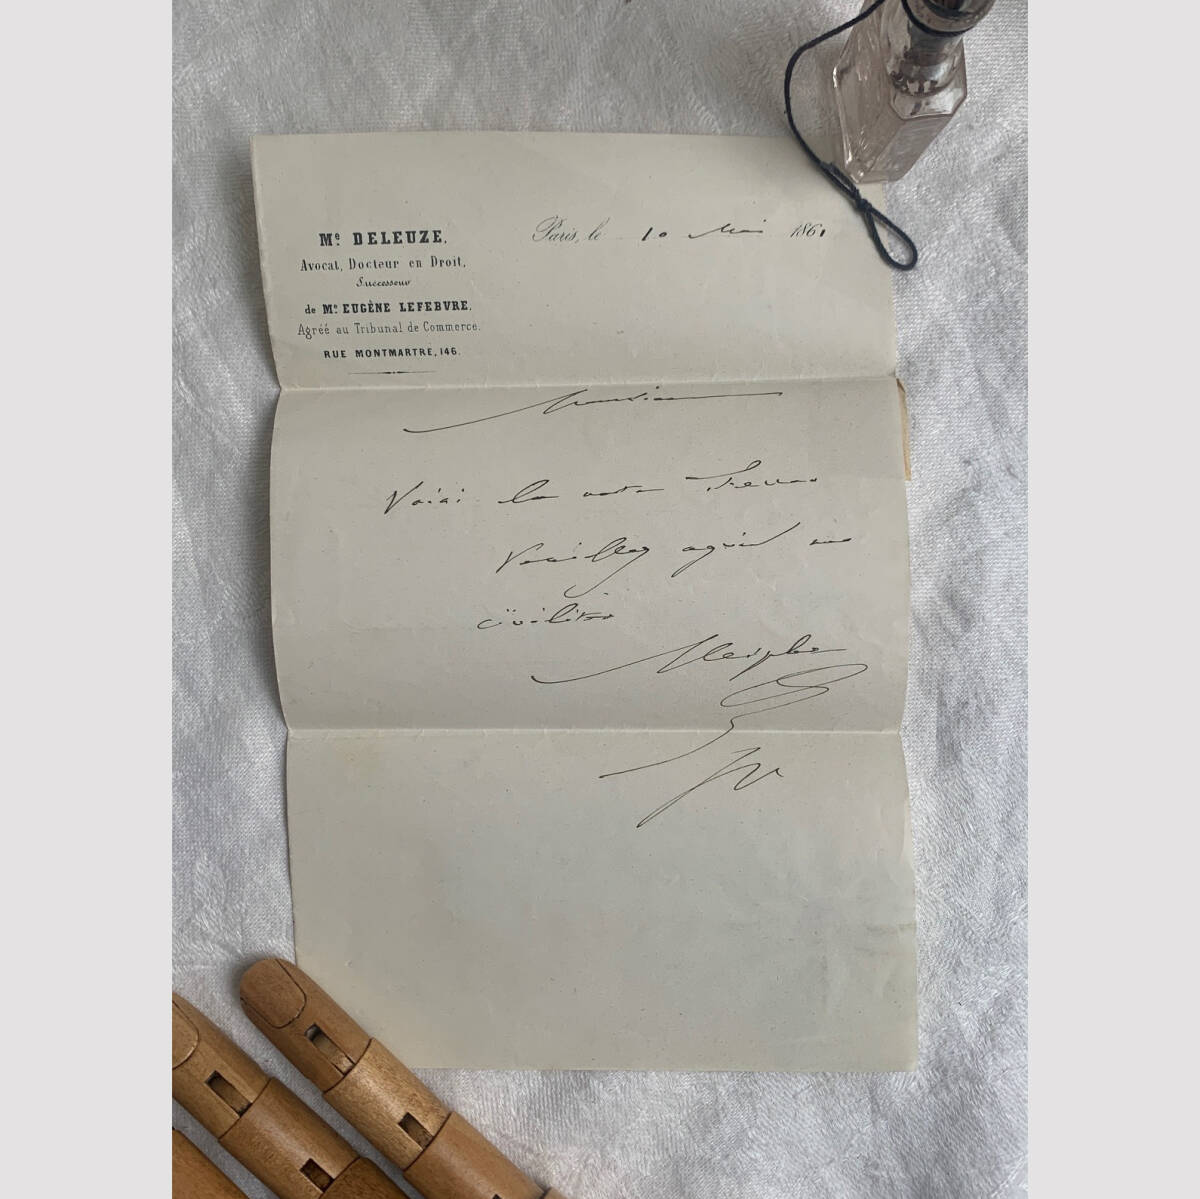 Mᵉ DELEUZE,
Avocat, Docteur en Droit,
Successeur
de Mᵉ EUGÈNE LEFEBVRE,
Agréé au Tribunal de Commerce.
RUE MONTMARTRE, 146.
Paris, le 10 Mai 1861
Monsieur
Voici la note
Veuillez agréer mes
civilités